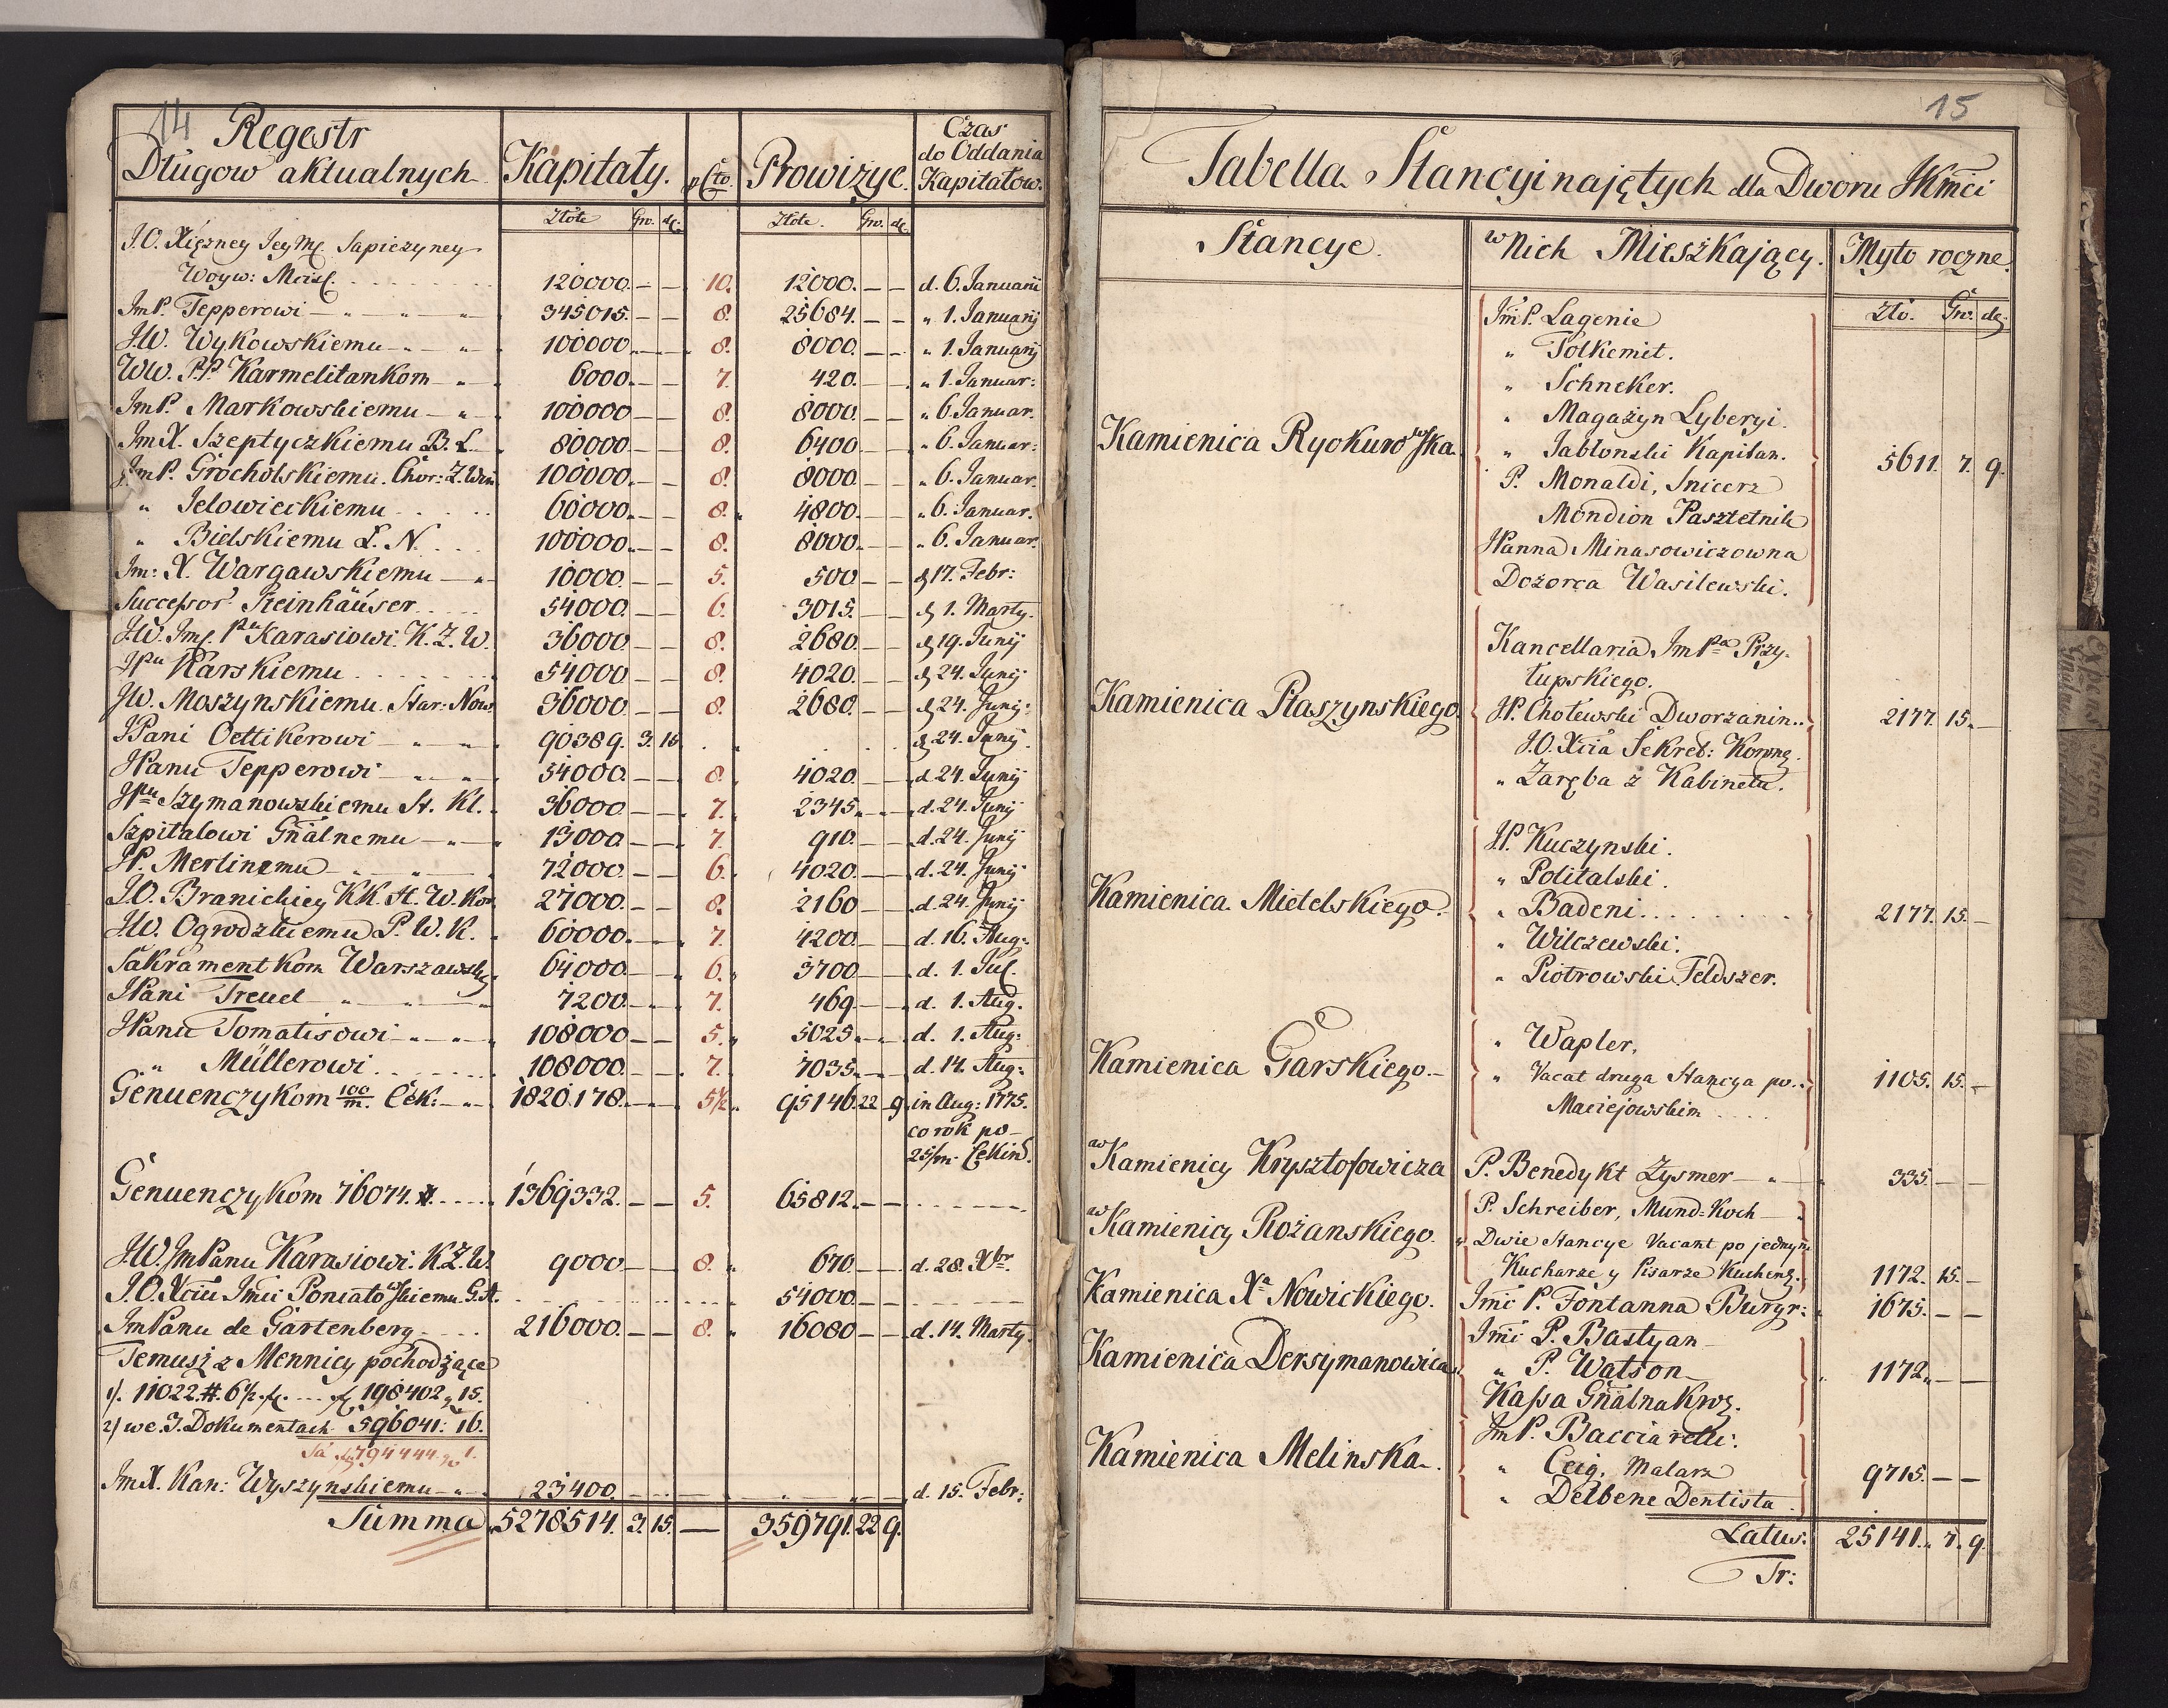 14
Regestr
Długow aktualnych
Kapitały.
p Cto.
Prowizye.
Czas
do Oddania
Kapitałow.
Złote Gro. de.
Złote. Gro. de.
J.O. Xięzney Jey Mć. Sapiezyney
Woyw: Mcisł. 120000. — — 10. 12000. — — d. 6. Januarii
JmP. Tepperowi — " — " — " 345015. — — 8. 25684. — — " 1. Januarij
JW. Wykowskiemu — " — " 100000. — — 8. 8000. — — " 1. Januarij
WW. P.P. Karmelitankom — " — 6000. — — 7. 420. — — " 1. Januar:
JmP. Markowskiemu — " — 100000 — — 8. 8000. — — " 6. Januar.
JmX. Szeptyczkiemu B. L. 80000 — — 8. 6400 — — " 6. Januar:
JmP. Grocholskiemu. Chor: Z. Win 100000. — — 8. 8000 — — " 6. Januar.
" Jelowieckiemu 60000. — — 8. 4800. — — " 6. Januar.
" Bielskiemu L. N. 100000. — — 8. 8000 — — " 6. Januar.
Jm: X. Wargawskiemu — " 10000. — — 5. 500 — — d 17. Febr:
Successor. Steinhäuser 54000. — — 6. 3015. — — d 1. Marty.
JW. Jmć. Pnu Karasiowi. K. Z. W. 36000 — — 8. 2680. — — d 19. Junij
JPnu Karskiemu 54000 — — 8. 4020. — — d 24. Junij
JW. Moszynskiemu. Star: Now. 36000. — — 8. 2680. — — d 24. Junij:
JPani Oettikerowi — " — " 90389. 3. 15 d 24. Junij.
JPanu Tepperowi — " — " 54000. — — 8. 4020. — — d. 24. Junij
JPnu Szymanowskiemu St. Kl. 36000 — — 7. 2345. — — d. 24. Junij
Szpitalowi Gñalnemu — " — 13000 — — 7. 910. — — d. 24. Junij
JP. Merlinemu 72000. — — 6. 4020. — — d. 24. Junij
J.O. Branickiey KK. H. W. Kor. 27000. — — 8. 2160 — — d. 24. Junij
JW. Ogrodzkiemu P. W. K. 60000. — — 7. 4200. — — d. 16. Aug:
Sakrament kom Warszawsk. 64000. — — 6. 3700 — — d. 1. Jul.
JPani Treuel — " — " 7200. — — 7. 469. — — d. 1. Aug.
JPanu Tomatisowi — " — " 108000 — — 5. 5025. — — d. 1. Aug:
" Müllerowi 108000. — — 7. 7035. — — d. 14. Aug:
Genuenczykom 100/m. Cek: — " 1820178. — — 5½ 95146. 22 9. in Aug: 1775.
co rok po
25/m. Cekin.
Genuenczykom 76074. #. 1369332. — — 5. 65812. — —
JW. JmPanu Karasiowi. K.Z.W. 9000 — — 8. 670. — — d. 28. Xbr.
J.O. Xciu Jmci Poniatowskiemu G.A. 54000 — —
JmPanu de Gartenberg 216000. — — 8. 16080 — — d. 14. Marty.
Temusz z Mennicy pochodzące
1). 11022. #. 6½. fl. 198402 " 15.
2) we 3. Dokumentach 596041: 16.
Sa 794444. 1.
JmX. Kan: Wyszynskiemu — " 23400. — — d. 15. Febr:
Summa 5278514. 3. 15. — 359791. 22 9.
15
Tabella Stancyi najętych dla Dworu JKmci
Stancye.
w Nich Mieszkający.
Myto roczne.
Zło. Gro. de.
JmP. Lagenie
" Tolkemit.
" Schneker.
" Magazyn Lyberyi.
Kamienica Ryokurowska.
" Jabłonski Kapitan.
5611. 7. 9.
P. Monaldi, Snicerz
Mondion Pasztetnik
JPanna Minasowiczowna
Dozorca Wasilewski.
Kancellaria JmPa Przy-
łupskiego.
Kamienica Ptaszynskiego.
JP. Chotewski Dworzanin..
2177. 15. —
J.O. Xcia Sekret: Koronę.
" Zaręba z Kabinetu.
JP. Kuczynski.
" Politalski.
Kamienica Mielelskiego.
" Badeni
2177. 15. —
" Wilczewski.
" Piotrowski Feldszer.
" Wapler,
Kamienica Garskiego. —
" Vacat druga Stancya po..
1105. 15. —
Maciejowskim
w Kamienicy Krysztofowicza P. Benedykt Zysmer — " — 335. — —
P. Schreiber, Mund-Koch —
w Kamienicy Rożanskiego.
" Dwie Stancye Vacant po jednym
Kucharze y Pisarze Kuchenę. 1172. 15. —
Kamienica Xa Nowickiego. Jmci P. Fontanna Burgr: 1675. — —
Jmci P. Bastyan
Kamienica Dersymanowica " P. Watson 1172. — —
Kassa Gñalna Krog.
JmP. Bacciarelli.
Kamienica Melinska.
" Ceig. Malarz
9715. — —
" Delbene Dentista.
Latus: 25141. 7. 9.
Tr: